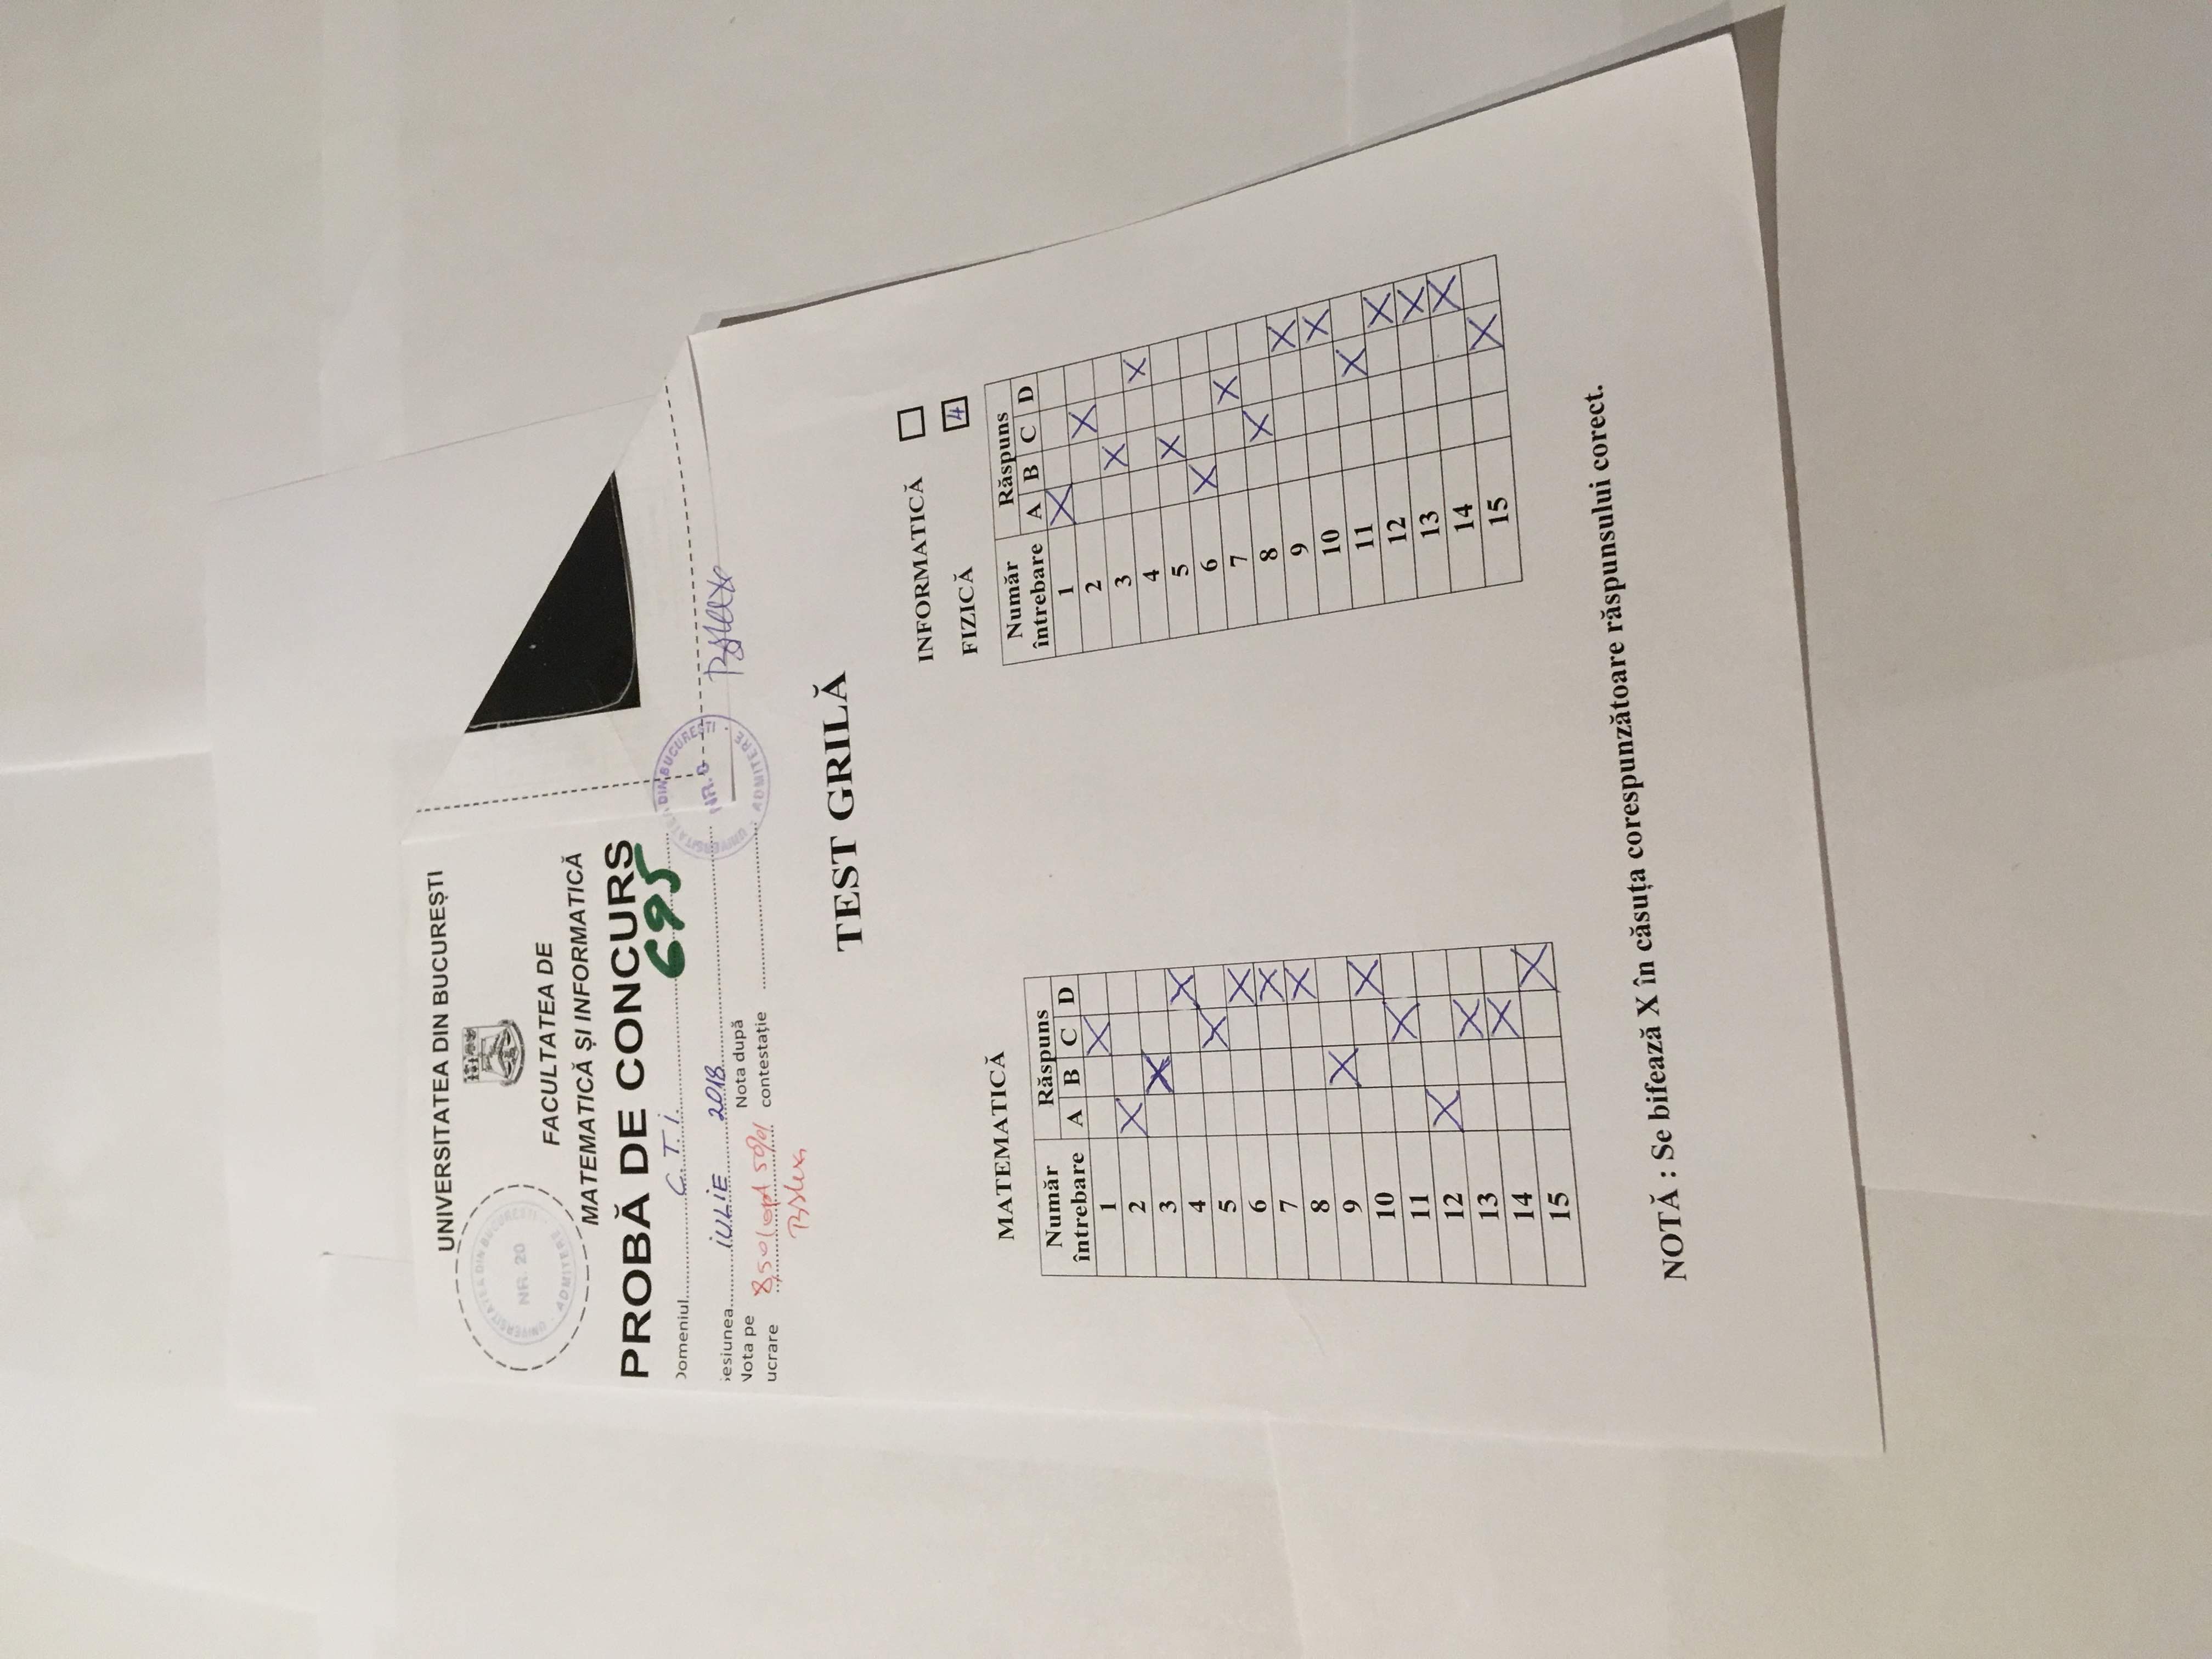 UNIVERSITATEA DIN BUCUREȘTI
UNIVERSITATEA DIN BUCUREȘTI
NR. 20
ADMITERE
FACULTATEA DE
MATEMATICĂ ȘI INFORMATICĂ
PROBĂ DE CONCURS
695
Domeniul C.T.I.
Sesiunea IULIE 2018
UNIVERSITATEA DIN BUCUREȘTI
NR. 6
ADMITERE
Nota pe
ucrare 8,50 (opt 50%)
Nota după
contestație
TEST GRILĂ
INFORMATICĂ
FIZICĂ 4
MATEMATICĂ
Număr întrebare Răspuns
A B C D
1 X
2 X
3 X
4 X
5 X
6 X
7 X
8 X
9 X
10 X
11 X
12 X
13 X
14 X
15 X
Număr întrebare Răspuns
A B C D
1 X
2 X
3 X
4 X
5 X
6 X
7 X
8 X
9 X
10 X
11 X
12 X
13 X
14 X
15 X
NOTĂ : Se bifează X în căsuța corespunzătoare răspunsului corect.